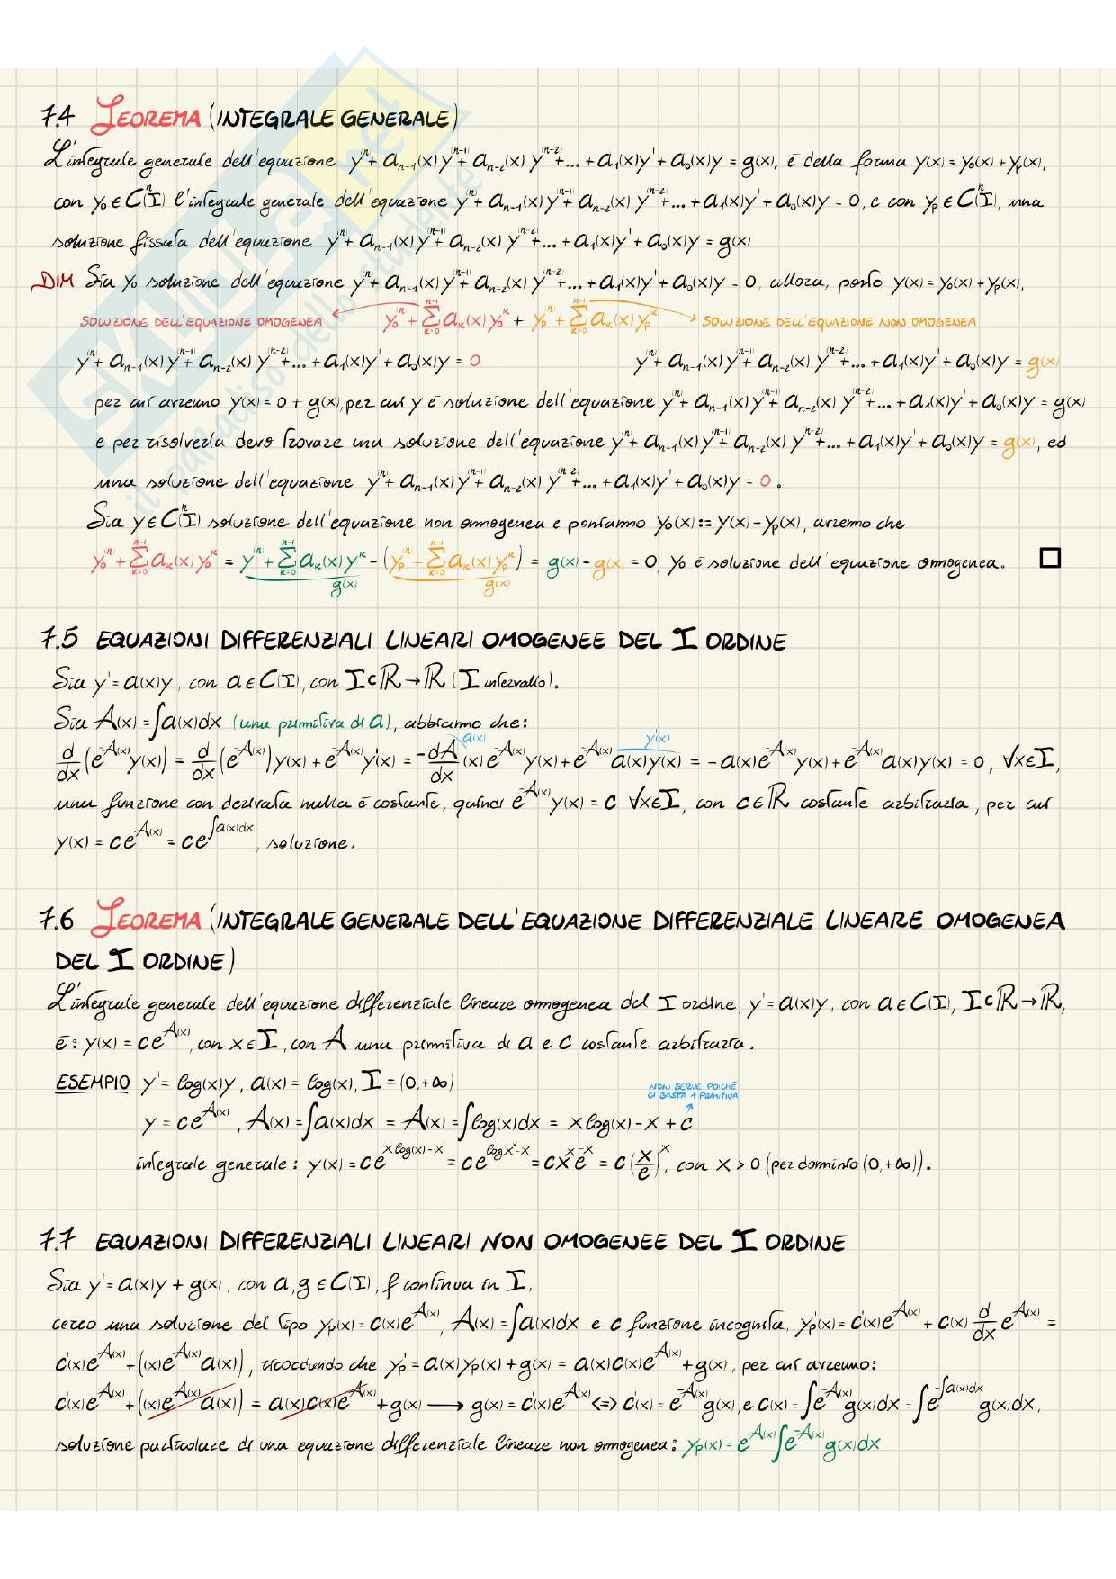 7.4 TEOREMA (INTEGRALE GENERALE)
L'integrale generale dell'equazione y⁽ⁿ⁾ + aₙ₋₁(x)y⁽ⁿ⁻¹⁾ + aₙ₋₂(x)y⁽ⁿ⁻²⁾ + ... + a₁(x)y' + a₀(x)y = g(x), è della forma y(x) = y₀(x) + yₚ(x),
con y₀ ∈ Cⁿ(I) l'integrale generale dell'equazione y⁽ⁿ⁾ + aₙ₋₁(x)y⁽ⁿ⁻¹⁾ + aₙ₋₂(x)y⁽ⁿ⁻²⁾ + ... + a₁(x)y' + a₀(x)y = 0, e con yₚ ∈ Cⁿ(I), una
soluzione fissata dell'equazione y⁽ⁿ⁾ + aₙ₋₁(x)y⁽ⁿ⁻¹⁾ + aₙ₋₂(x)y⁽ⁿ⁻²⁾ + ... + a₁(x)y' + a₀(x)y = g(x)
DIM Sia y₀ soluzione dell'equazione y⁽ⁿ⁾ + aₙ₋₁(x)y⁽ⁿ⁻¹⁾ + aₙ₋₂(x)y⁽ⁿ⁻²⁾ + ... + a₁(x)y' + a₀(x)y = 0, allora, posto y(x) = y₀(x) + yₚ(x),
SOLUZIONE DELL'EQUAZIONE OMOGENEA y₀ⁿ + Σₖ₌₀ⁿ⁻¹ aₖ(x)y₀ᵏ + yₚⁿ + Σₖ₌₀ⁿ⁻¹ aₖ(x)yₚᵏ SOLUZIONE DELL'EQUAZIONE NON OMOGENEA
y⁽ⁿ⁾ + aₙ₋₁(x)y⁽ⁿ⁻¹⁾ + aₙ₋₂(x)y⁽ⁿ⁻²⁾ + ... + a₁(x)y' + a₀(x)y = 0 y⁽ⁿ⁾ + aₙ₋₁(x)y⁽ⁿ⁻¹⁾ + aₙ₋₂(x)y⁽ⁿ⁻²⁾ + ... + a₁(x)y' + a₀(x)y = g(x)
per cui avremo y(x) = 0 + g(x), per cui y è soluzione dell'equazione y⁽ⁿ⁾ + aₙ₋₁(x)y⁽ⁿ⁻¹⁾ + aₙ₋₂(x)y⁽ⁿ⁻²⁾ + ... + a₁(x)y' + a₀(x)y = g(x)
e per risolverla devo trovare una soluzione dell'equazione y⁽ⁿ⁾ + aₙ₋₁(x)y⁽ⁿ⁻¹⁾ + aₙ₋₂(x)y⁽ⁿ⁻²⁾ + ... + a₁(x)y' + a₀(x)y = g(x), ed
una soluzione dell'equazione y⁽ⁿ⁾ + aₙ₋₁(x)y⁽ⁿ⁻¹⁾ + aₙ₋₂(x)y⁽ⁿ⁻²⁾ + ... + a₁(x)y' + a₀(x)y = 0.
Sia y ∈ Cⁿ(I) soluzione dell'equazione non omogenea e poniamo y₀(x) := y(x) - yₚ(x), avremo che
y₀ⁿ + Σₖ₌₀ⁿ⁻¹ aₖ(x)y₀ᵏ = yⁿ + Σₖ₌₀ⁿ⁻¹ aₖ(x)yᵏ - (yₚⁿ + Σₖ₌₀ⁿ⁻¹ aₖ(x)yₚᵏ) = g(x) - g(x) = 0, y₀ è soluzione dell'equazione omogenea. □
g(x) g(x)
7.5 EQUAZIONI DIFFERENZIALI LINEARI OMOGENEE DEL I ORDINE
Sia y' = a(x)y, con a ∈ C(I), con I ⊂ ℝ → ℝ (I intervallo).
Sia A(x) = ∫a(x)dx (una primitiva di a), abbiamo che:
a(x) y'(x)
d/dx (e^{-A(x)}y(x)) = d/dx (e^{-A(x)})y(x) + e^{-A(x)}y'(x) = -dA/dx (x)e^{-A(x)}y(x) + e^{-A(x)}a(x)y(x) = -a(x)e^{-A(x)}y(x) + e^{-A(x)}a(x)y(x) = 0, ∀x∈I,
una funzione con derivata nulla è costante, quindi e^{-A(x)}y(x) = c ∀x∈I, con c∈ℝ costante arbitraria, per cui
y(x) = ce^{A(x)} = ce^{∫a(x)dx}, soluzione.
7.6 TEOREMA (INTEGRALE GENERALE DELL'EQUAZIONE DIFFERENZIALE LINEARE OMOGENEA
DEL I ORDINE)
L'integrale generale dell'equazione differenziale lineare omogenea del I ordine y' = a(x)y, con a ∈ C(I), I ⊂ ℝ → ℝ,
è: y(x) = ce^{A(x)}, con x ∈ I, con A una primitiva di a e c costante arbitraria.
ESEMPIO y' = log(x)y, a(x) = log(x), I = (0,+∞)
NON SERVE POICHÉ
CI BASTA 1 PRIMITIVA
y = ce^{A(x)}, A(x) = ∫a(x)dx = A(x) = ∫log(x)dx = xlog(x) - x + c
integrale generale: y(x) = ce^{xlog(x)-x} = ce^{logxˣ-x} = cxˣe⁻ˣ = c(x/e)ˣ, con x > 0 (per dominio (0,+∞)).
7.7 EQUAZIONI DIFFERENZIALI LINEARI NON OMOGENEE DEL I ORDINE
Sia y' = a(x)y + g(x), con a,g ∈ C(I), f continua in I,
cerco una soluzione del tipo yₚ(x) = c(x)e^{A(x)}, A(x) = ∫a(x)dx e c funzione incognita, yₚ'(x) = c'(x)e^{A(x)} + c(x) d/dx e^{A(x)} =
c'(x)e^{A(x)} + (c(x)e^{A(x)}a(x)), ricordando che yₚ' = a(x)yₚ(x) + g(x) = a(x)c(x)e^{A(x)} + g(x), per cui avremo:
c'(x)e^{A(x)} + (c(x)e^{A(x)}a(x)) = a(x)c(x)e^{A(x)} + g(x) ⟶ g(x) = c'(x)e^{A(x)} <=> c'(x) = e^{-A(x)}g(x), e c(x) = ∫e^{-A(x)}g(x)dx = ∫e^{-∫a(x)dx}g(x)dx,
soluzione particolare di una equazione differenziale lineare non omogenea: yₚ(x) = e^{A(x)}∫e^{-A(x)}g(x)dx